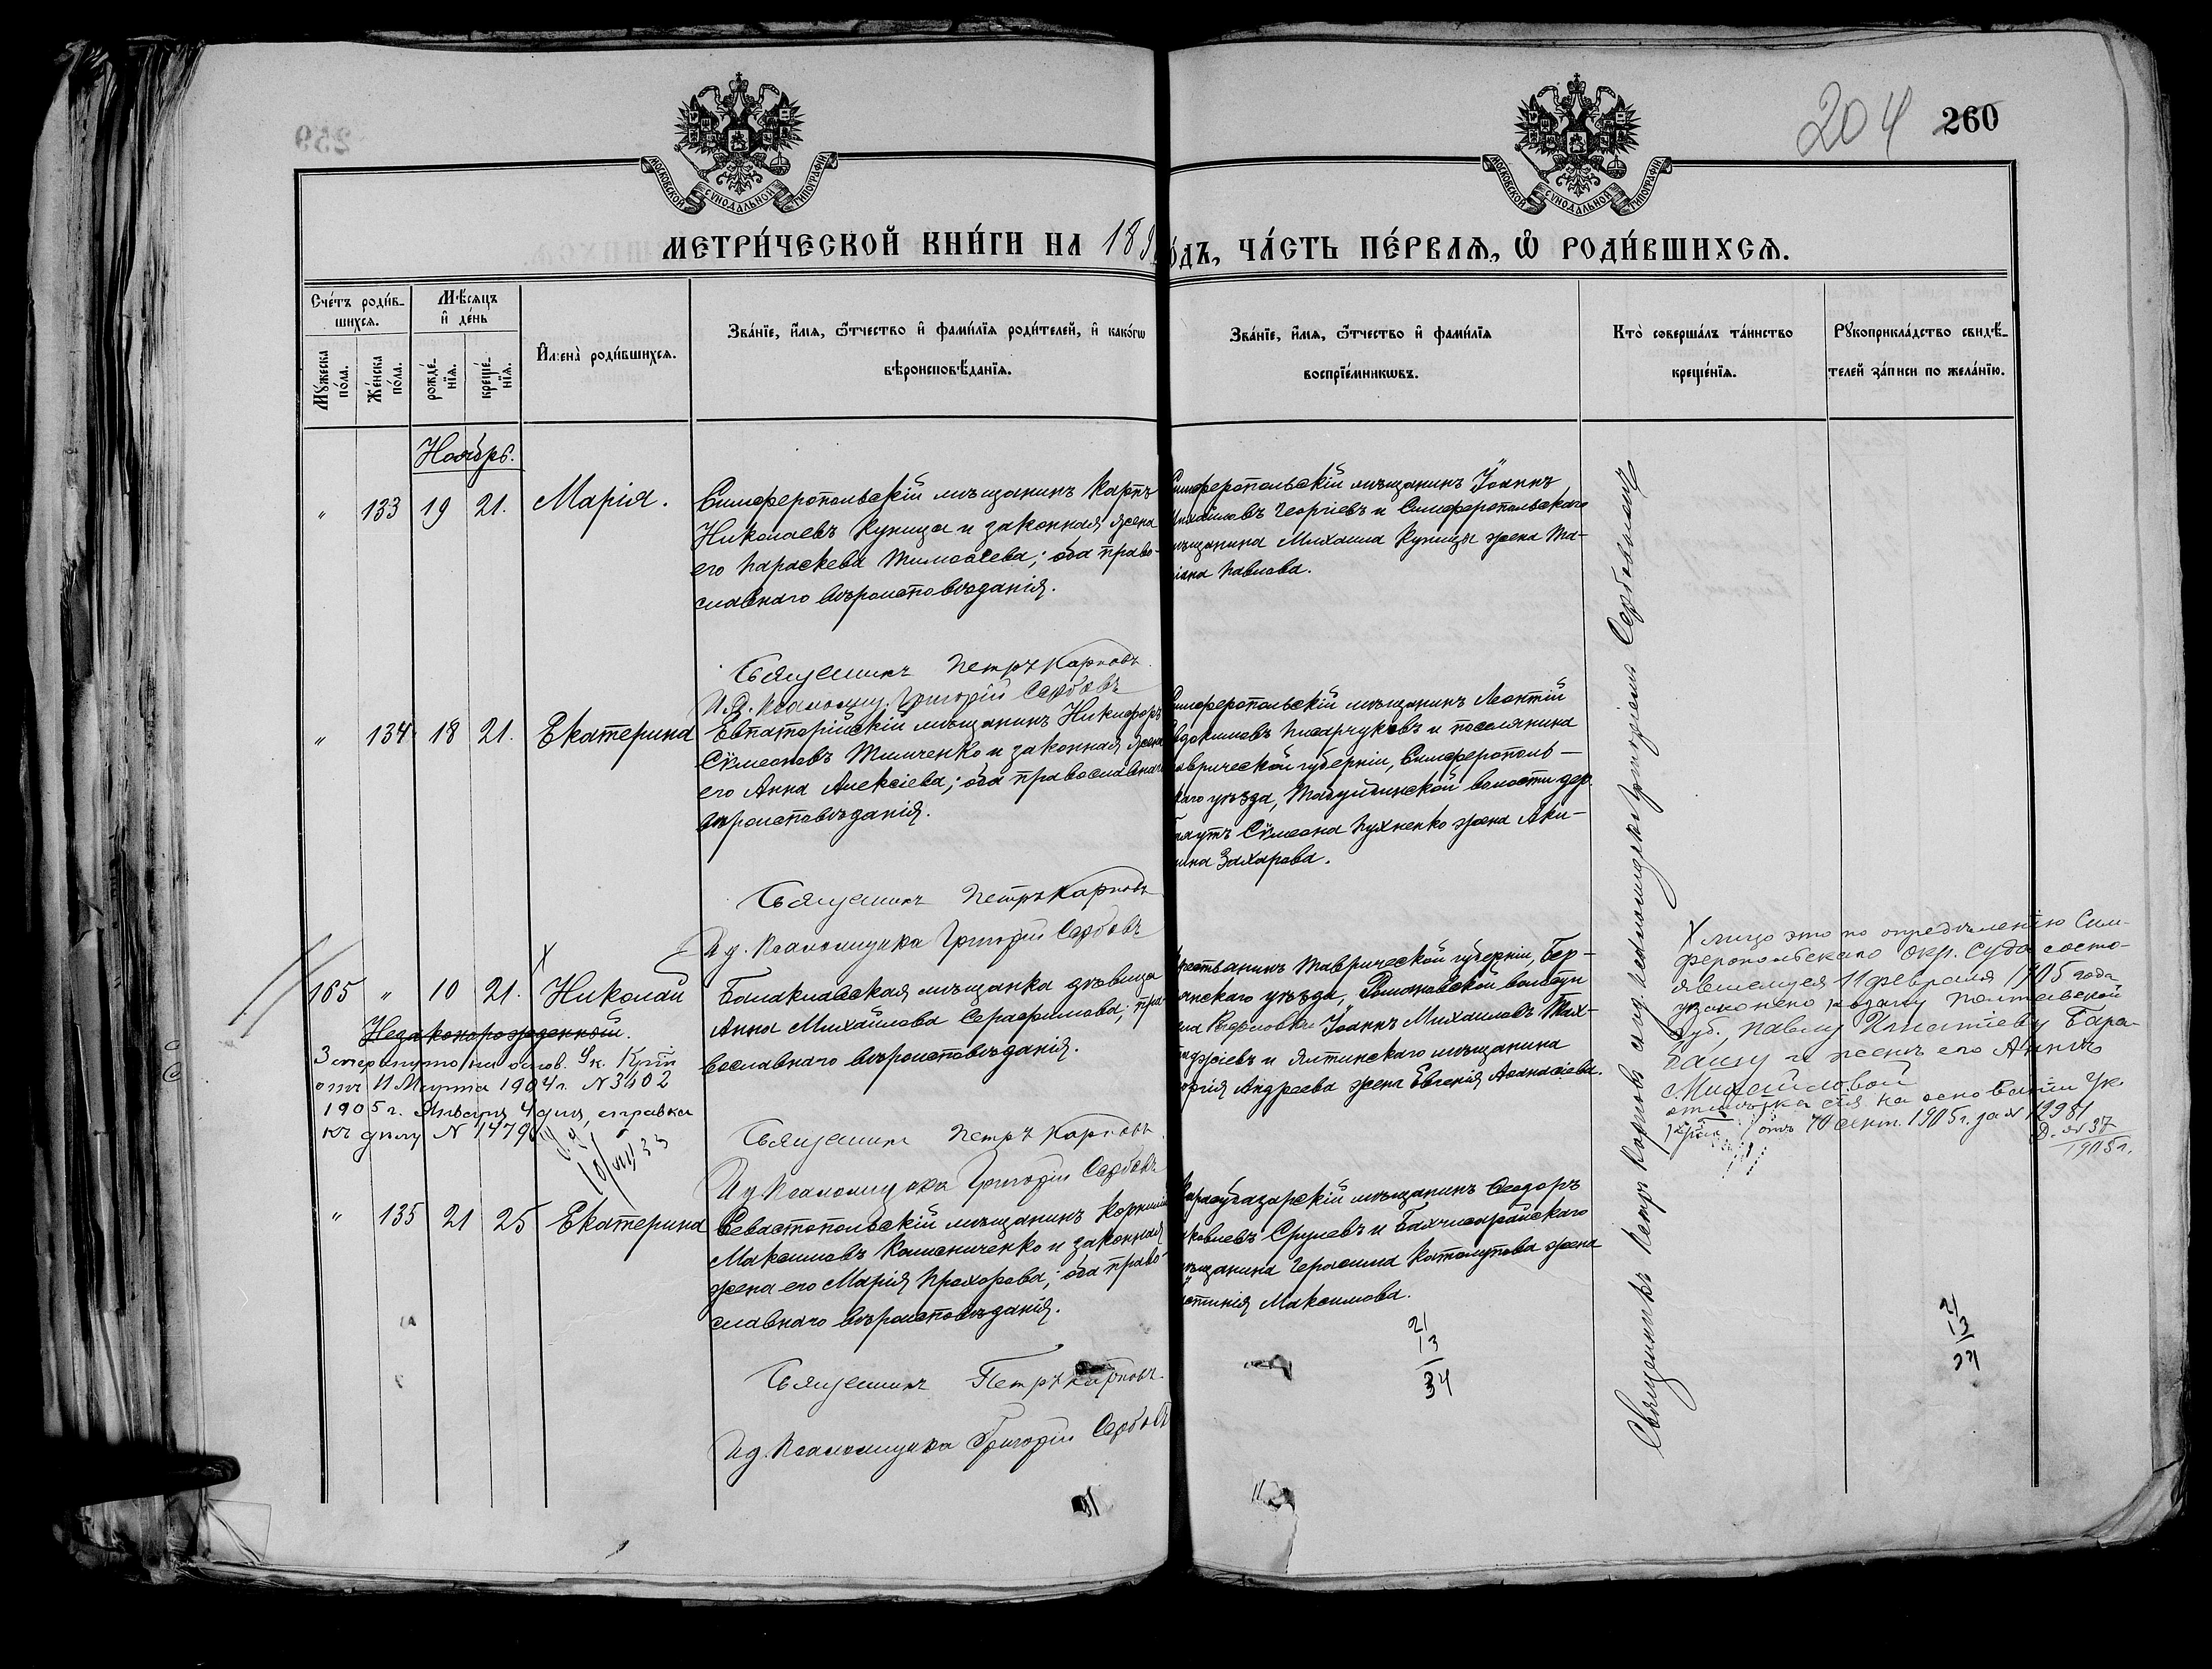 259
204 260
МОСКОВСКОЙ СѴНОДАЛЬНОЙ ТИПОГРАФІИ
МОСКОВСКОЙ СѴНОДАЛЬНОЙ ТИПОГРАФІИ
МЕТРИ́ЧЕСКОЙ КНИ́ГИ НА 189
ѻ́дъ, ЧА́СТЬ ПЕ́РВАѦ, Ѡ҆ РОДИ́ВШИХСѦ.
Сче́тъ роди́в-
шихсѧ.
Мꙋ́жеска
по́ла.
Же́нска
по́ла.
Мѣ́сѧцъ
и҆ де́нь
рожде́-
нїѧ.
креще́-
нїѧ.
И҆мена̀ роди́вшихсѧ.
Зва́нїе, и҆́мѧ, ѻ҆́тчество и҆ фами́лїѧ роди́телей, и҆ како́гѡ
вѣроисповѣ́данїѧ.
Зва́нїе, и҆́мѧ, ѻ҆́тчество и҆ фами́лїѧ
воспрїе́мникѡвъ.
Кто̀ соверша́лъ та́инство
креще́нїѧ.
Рꙋкоприкла́дство свидѣ́-
телей за́писи по жела́нїю.
Ноябрь.
" 133 19 21. Марія.
Симферопольскій мѣщанинъ Карпъ
Николаевъ Куница и законная жена
его Параскева Тимоѳеева; оба право-
славнаго вѣроисповѣданія.
Священникъ Петръ Карповъ
И.д. псаломщ. Григорій Сербовъ
Симферопольскій мѣщанинъ Іоаннъ
Михайловъ Георгіевъ и Симферопольскаго
мѣщанина Михаила Куницы жена Та-
іана Павлова.
" 134 18 21. Екатерина
Евпаторійскій мѣщанинъ Никифоръ
Сѵмеоновъ Тимченко и законная жена
его Анна Алексіева; оба православнаго
вѣроисповѣданія.
Священникъ Петръ Карповъ
И.д. псаломщика Григорій Сербовъ
Симферопольскій мѣщанинъ Леонтій
Евдокимовъ Писарчуковъ и поселянина
Таврической губерніи, Симферополь-
скаго уѣзда, волости дер.
Сѵмеона Пухненко жена Аки-
лина Захарова.
165 " 10 21. Николай
Незаконорожденный.
Зачеркнуто на основ. Ук.
отъ 11 Марта 1904 г. N 3402
1905 г. Января 4 дня, справка
къ дѣлу N 1479
Балаклавская мѣщанка дѣвица
Анна Михайлова Серафимова; пра-
вославнаго вѣроисповѣданія.
Священникъ Петръ Карповъ
И.д. псаломщика Григорій Сербовъ
Крестьянинъ Таврической губерніи, Бер-
дянскаго уѣзда, волости
Іоаннъ Михаиловъ
и Ялтинскаго мѣщанина
Георгія Андреева жена Евгенія Аѳанасіева.
Х лицо это по опредѣленію Сим-
феропольскаго Окр. Суда состо-
явшемуся 11 февраля 1905 года
узаконено козаку Полтавской
губ., Павлу Игнатіеву Бара-
башу и женѣ его Аннѣ
Михайловой
отмѣтка сія на основаніи Ук.
отъ сент. 1905 г. за N 12981
Д. N 37
1905 г.
" 135 21 25 Екатерина
Севастопольскій мѣщанинъ Корнилій
Максимовъ Калениченко и законная
жена его Марія Прохорова; оба право-
славнаго вѣроисповѣданія.
Священникъ Петръ Карповъ.
И.д. псаломщика Григорій Сербовъ
Карасубазарскій мѣщанинъ Ѳеодоръ
Яковлевъ и Бахчисарайскаго
мѣщанина Герасима жена
Іустинія Максимова.
21
13
34
21
13
34
Священникъ Петръ Карповъ съ и.д. псаломщика Григоріемъ Сербовымъ